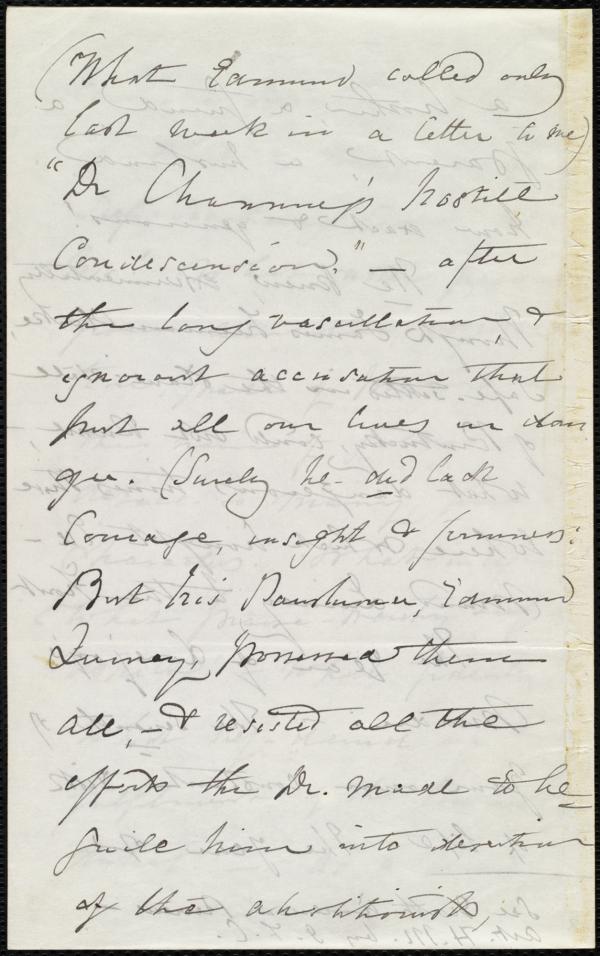 (What Edmund called only
last week in a letter to me)
"Dr Channing's hostile
Condescension," — after
the long vascillation, &
ignorant accusation that
put all our lives in dan
ger. (Surely he did lack
Courage, insight & firmness:
But his Parishioner, Edmund
Quincy, possessed them
all, — & resisted all the
efforts the Dr. made to be=
guile him into desertion
of the abolitionists,